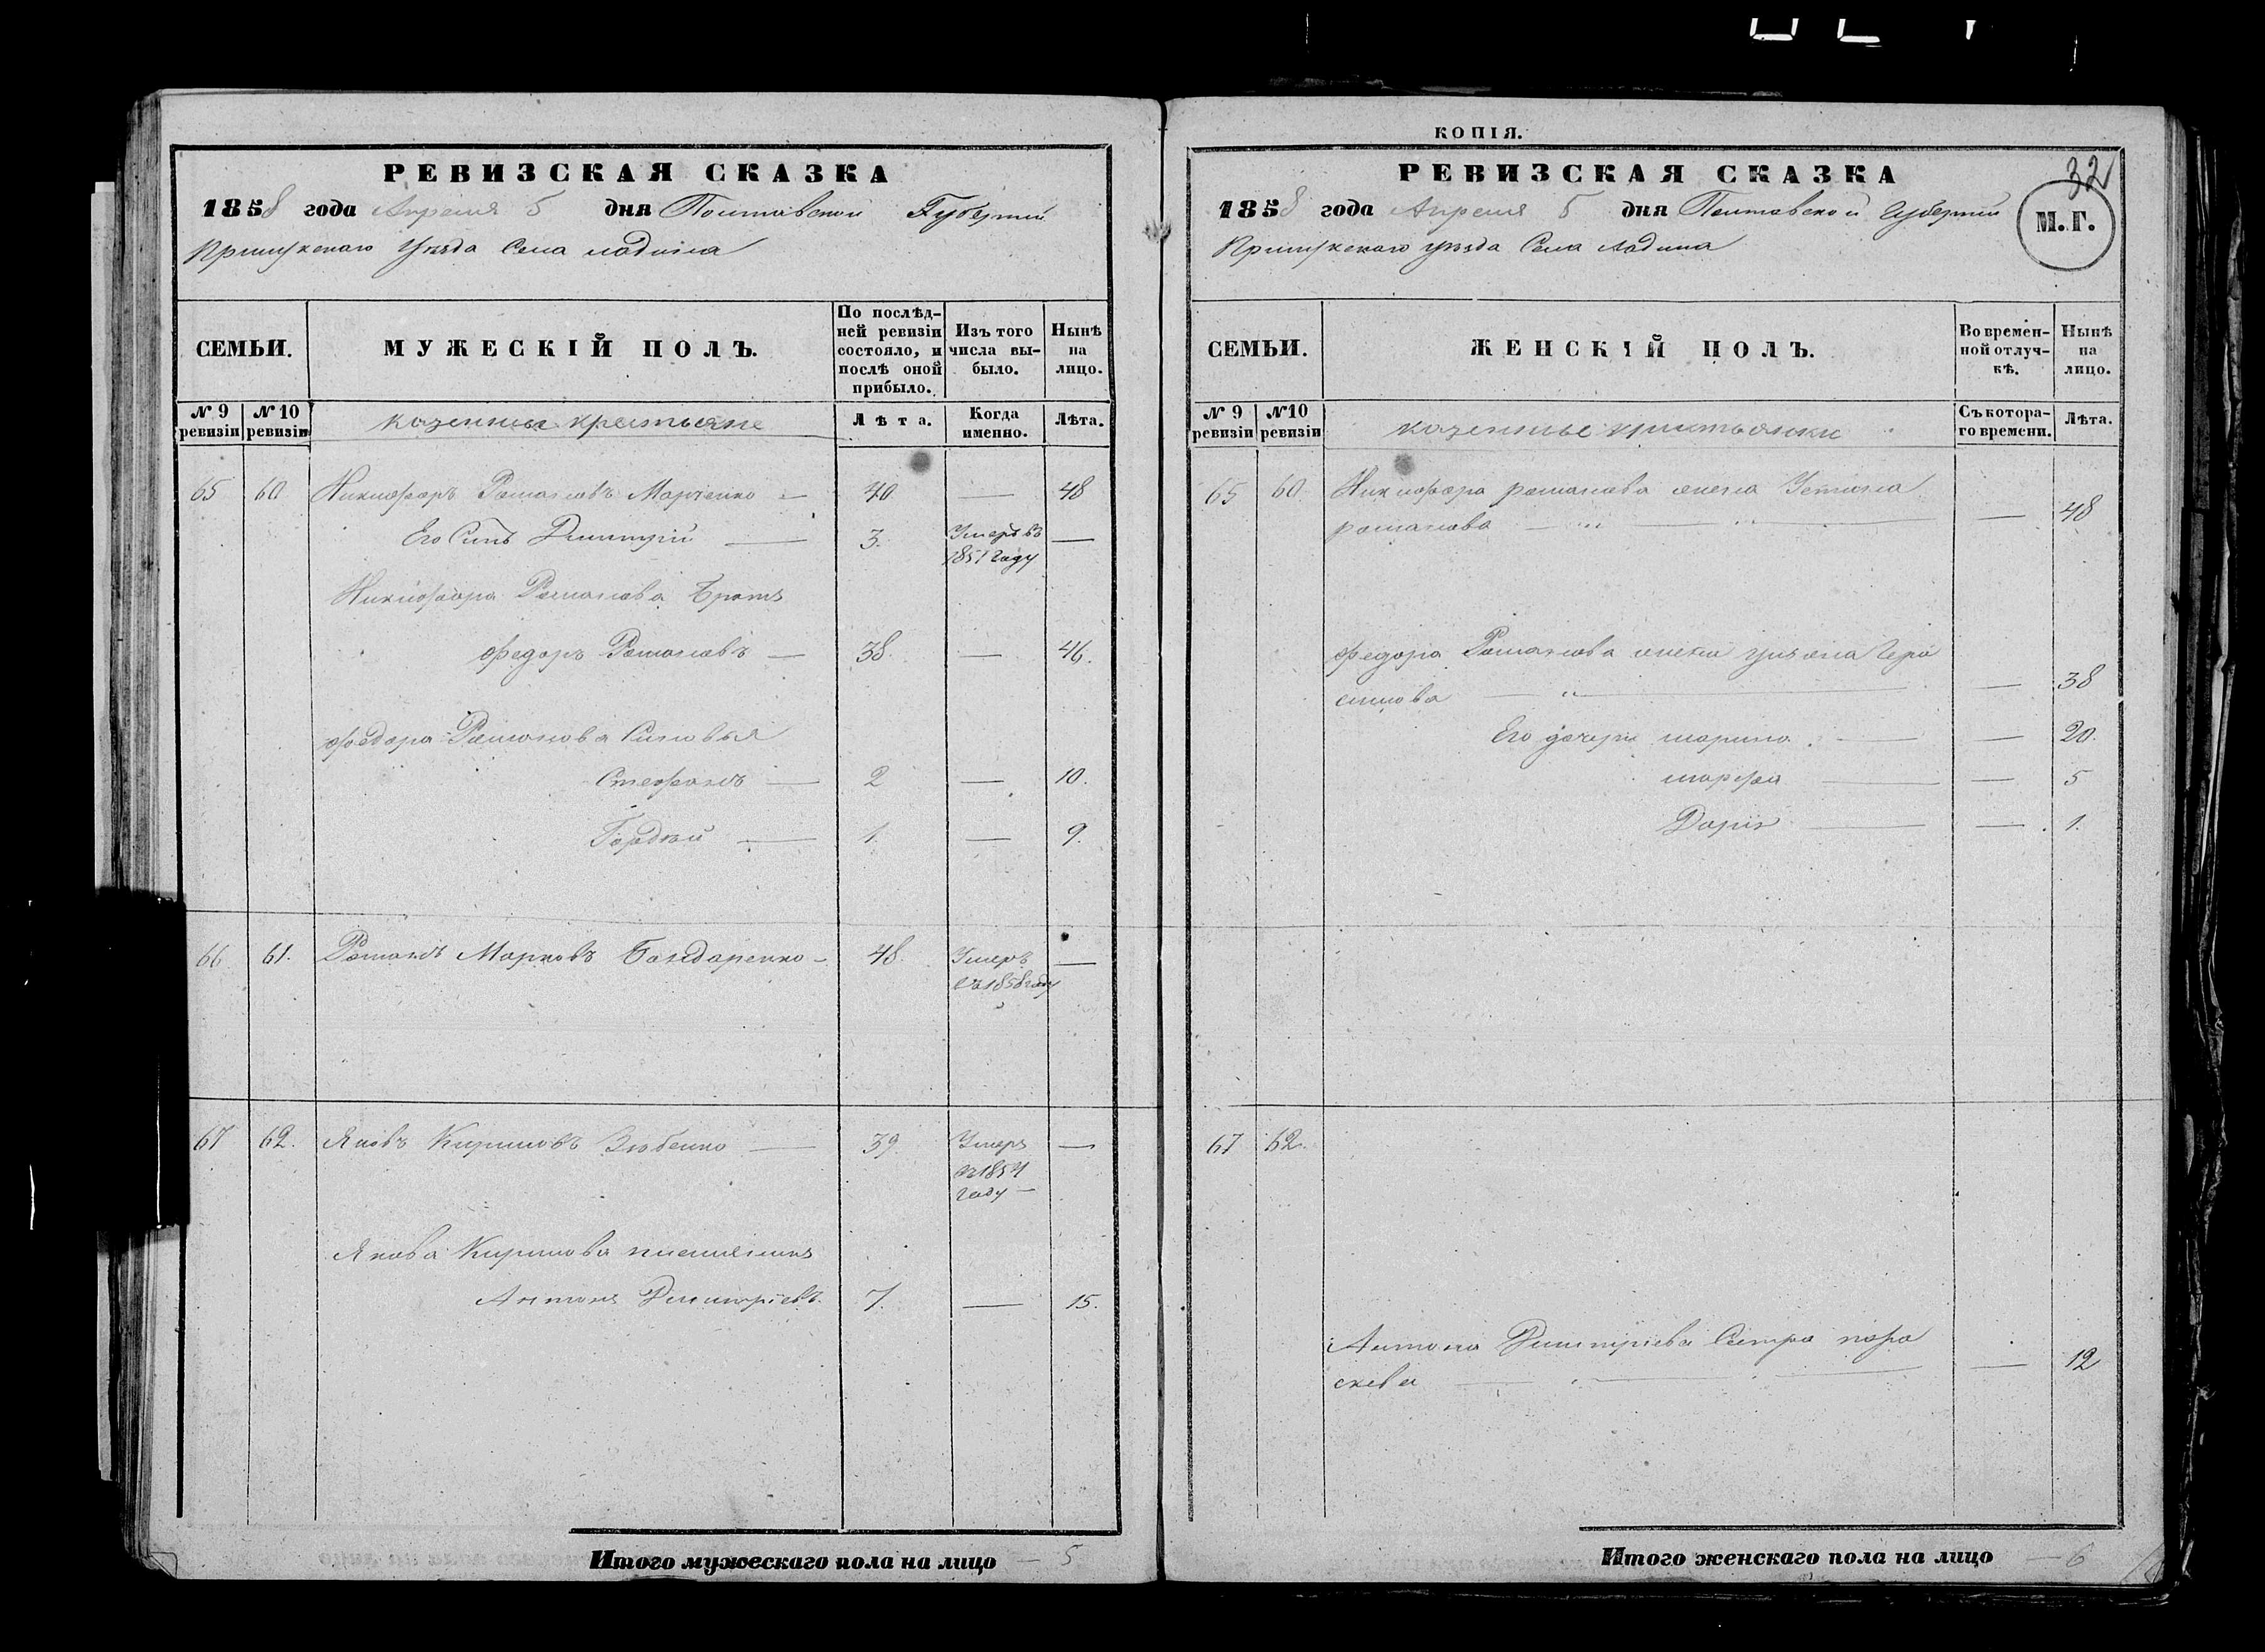 РЕВИЗСКАЯ СКАЗКА
1858 года Апреля 5 дня Полтавской Губернии
Прилукскаго Уезда Села Ладина
СЕМЬИ.
МУЖЕСКІЙ ПОЛЪ.
По послѣд-
ней ревизіи
состояло, и
послѣ оной
прибыло.
Изъ того
числа вы-
было.
Нынѣ
на
лицо.
№ 9
ревизіи
№ 10
ревизіи
казенные крестьяне
Лѣта.
Когда
именно.
Лѣта.
65 60 Никифоръ Романовъ Марченко — 40 — 48
Его Сынъ Димитрій — 3. Умеръ въ —
1851 году
Никифора Романова Братъ
Федоръ Романовъ — 38. — 46.
Федора Романова Сыновья
Стефанъ — 2 — 10.
Гордѣй — 1. — 9.
66 61. Романъ Марковъ Бондаренко — 48. Умеръ —
въ 1858 году
67 62. Яковъ Кириловъ Зюбенко — 39. Умеръ —
въ 1854
году —
Якова Кирилова племянникъ
Антонъ Димитріевъ. 7. — 15.
Итого мужескаго пола на лицо — 5
КОПІЯ.
РЕВИЗСКАЯ СКАЗКА
32
1858 года Апреля 5 дня Полтавской Губернии
М. Г.
Прилукскаго уезда Села Ладина
СЕМЬИ.
ЖЕНСКІЙ ПОЛЪ.
Во времен-
ной отлуч-
кѣ.
Нынѣ
на
лицо.
№ 9
ревизіи
№ 10
ревизіи
казенные крестьянки
Съ котора-
го времени.
Лѣта.
65 60. Никифора романова жена Устина
романова — — 48
Федора Романова жена Гера
симова — — 38
Его дочери марина. — — 20.
марфа — — 5
Дарія — — 1.
67 62.
Антона Димитріева Сестра пара
скева — — 12
Итого женскаго пола на лицо — 6